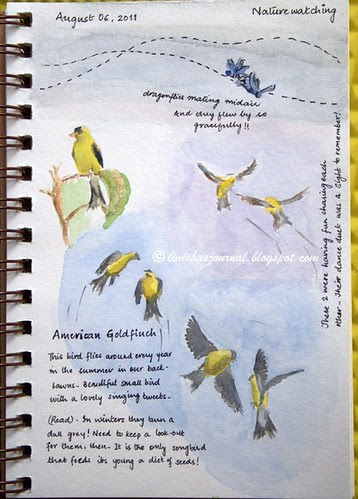 August 06, 2011
Nature watching
dragonflies mating midair
and they flew by so
gracefully!!
These 2 were having fun chasing each
other - Their dance duet was a sight to remember!
© linishasjournal.blogspot.com
American Goldfinch
This bird flies around every year
in the summer in our back-
lawns. Beautiful small bird
with a lovely singing tweets.
(Read) - In winters they turn a
dull grey! Need to keep a look out
for them, then - It is the only songbird
that feeds its young a diet of seeds!